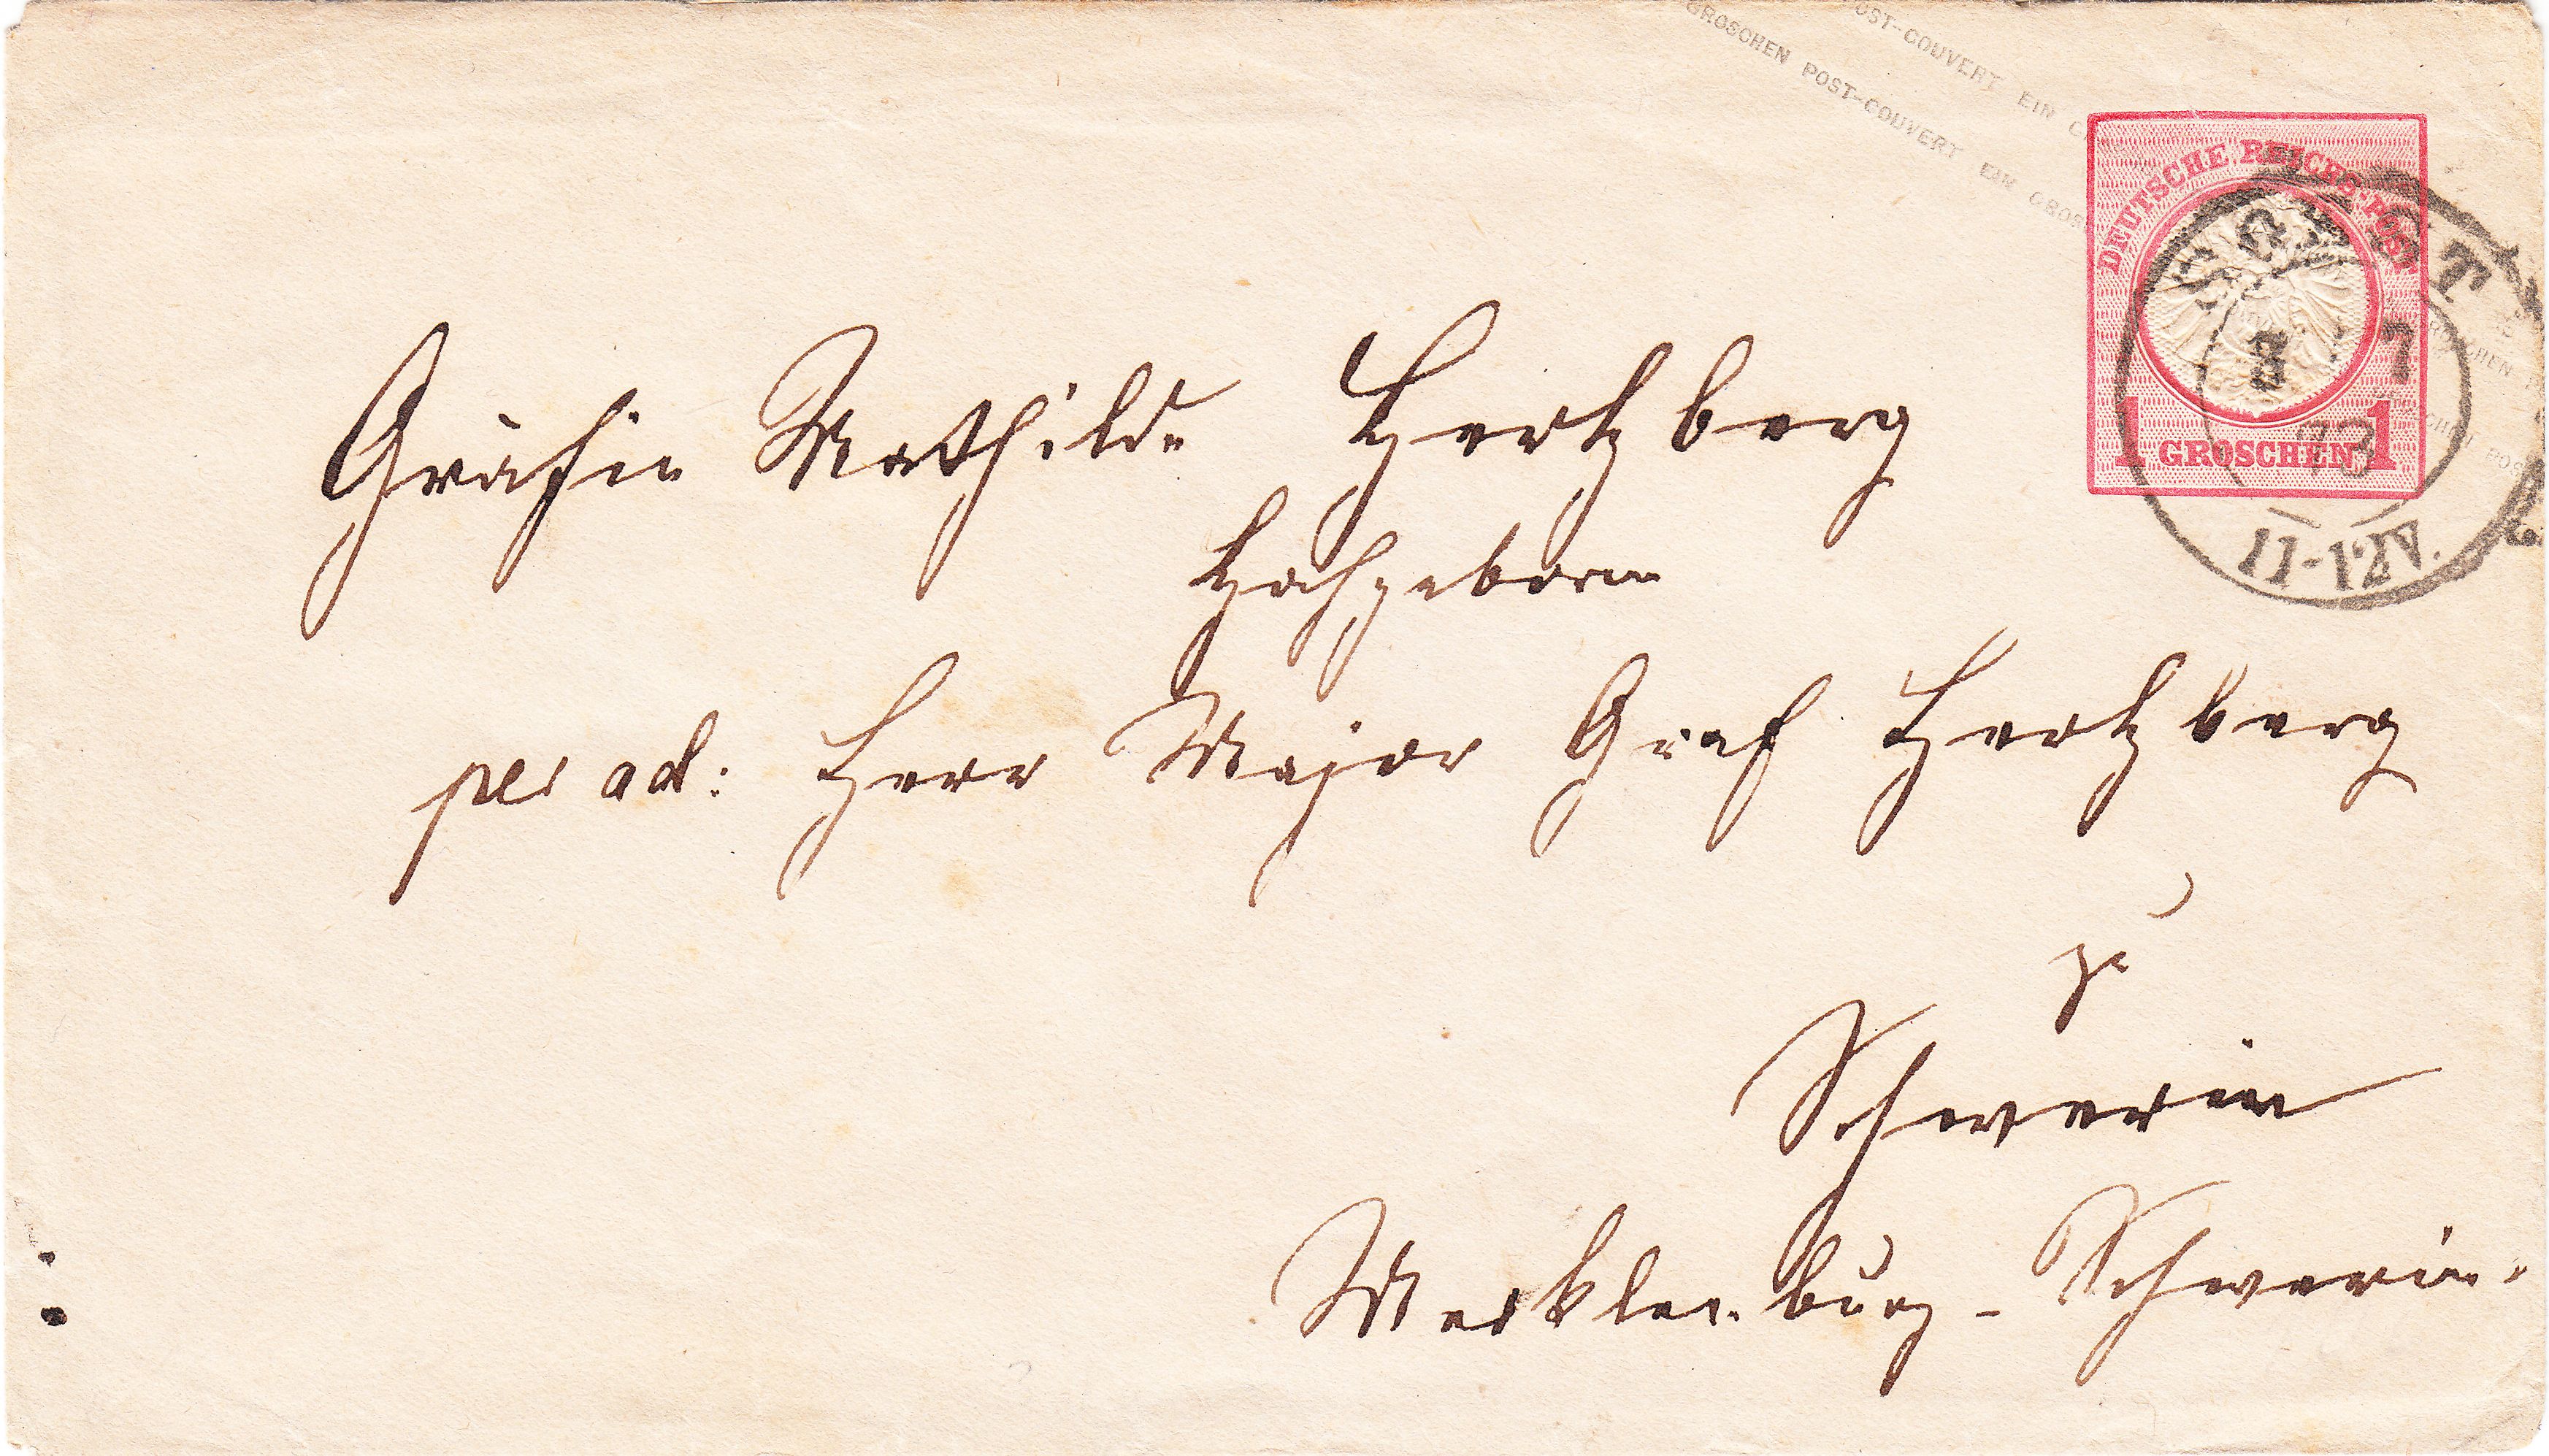 POST-COUVERT EIN
GROSCHEN POST-COUVERT EIN GROS
DEUTSCHE REICHS-POST
1 GROSCHEN 1
7
73
11-12V.
Gräfin Mathilde Hertzberg
Hochgeboren
per ad: Herr Major Graf Hertzberg
zu
Schwerin
Mecklenburg-Schwerin.